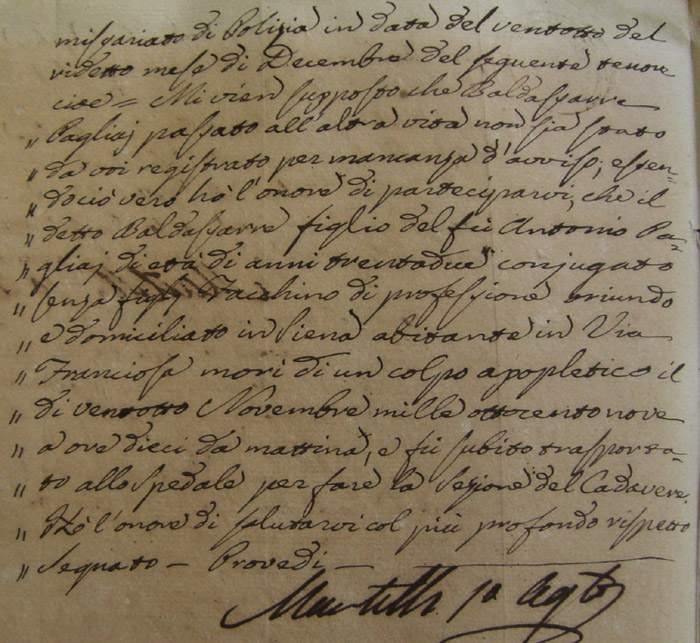 missariato di Polizia in data del ventotto del
videtto mese di Decembre del seguente tenore
cioe = Mi vien supposto che Baldassarre
" Pagliaj passato all'altra vita non sia stato
" da voi registrato per mancanza d'avviso; essen=
" dociò vero hò l'onore di parteciparvi, che il
" detto Baldassarre figlio del fù Antonio Pa=
" gliaj di età di anni trentadue conjugato
" senza figlj Facchino di professione oriundo
" e domiciliato in Siena abitante in Via
" Franciosa morì di un colpo apopletico il
" di ventotto Novembre mille ottocento nove
" a ore dieci da mattina, e fù subito trasporta=
" to allo spedale per fare la Sezione del Cadavere.
" Hò l'onore di salutarvi col più profondo rispetto
" Segnato — Provedi —
Martelli